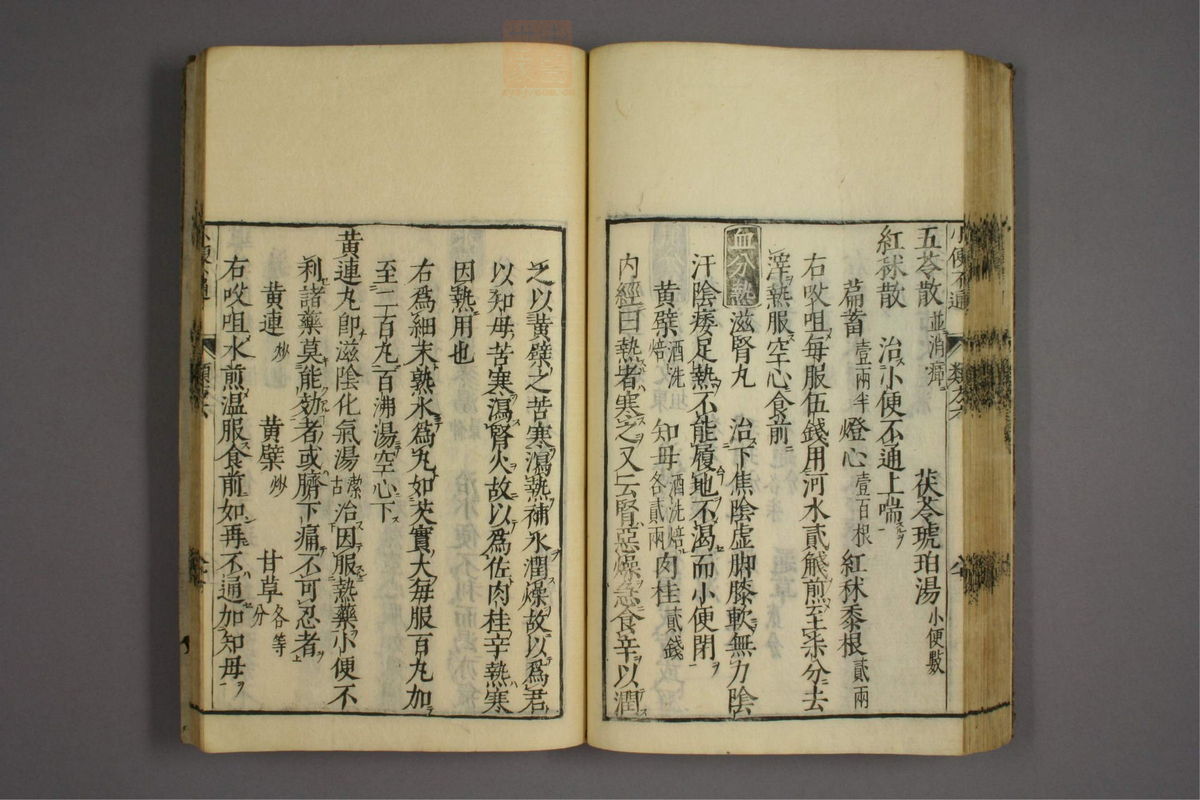 五苓散 並消瀆 茯苓琥珀湯 小便數
紅秫散 治小便不通上喘
萹蓄 壹兩半 燈心 壹百根 紅秫黍根 貳兩
右㕮咀每服伍錢用河水貳觥煎至柒分去
滓熱服空心食前
血分熱 滋腎丸 治下焦陰虛脚膝軟無力陰
汗陰痿足熱不能履地不渴而小便閉
黄檗 酒洗焙 知母 酒洗焙各貳兩 肉桂 貳錢
内經曰熱者寒之又云腎惡燥急食辛以潤
之以黄檗之苦寒瀉熱補水潤燥故以爲君
以知母苦寒瀉腎火故以爲佐肉桂辛熱寒
因熱用也
右爲細末熟水爲丸如芡實大每服百丸加
至二百丸百沸湯空心下
黄連丸即滋陰化氣湯 潔古 治因服熱藥小便不
利諸藥莫能効者或臍下痛不可忍者
黄連 炒 黄檗 炒 甘草 各等分
右㕮咀水煎温服食前如再不通加知母
小便不通 類卷六